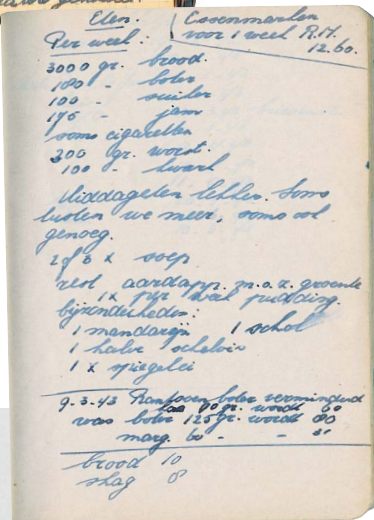 Eten.
Essenmarken
voor 1 week R.M.
12.60.
Per week:
3000 gr. brood.
180 - boter
100 - suiker
175 - jam
soms cigaretten
300 gr. worst.
100 - kwark
Middageten lekker. Soms
lusten we meer, soms ook
genoeg.
2 of 3 x soep
rest aardapp. m.o.z. groente
1x per week pudding.
bijzonderheden:
1 mandarijn 1 schol
1 halve schelvis
1 x spiegelei
9-3-43 Rantsoen boter verminderd
was boter 125 gr. wordt 80
marg. 60 - -
brood 10
slag 8